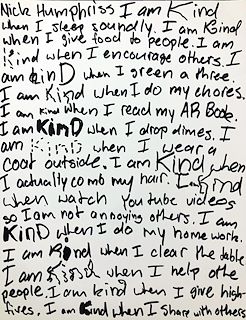 Nick Humphriss I am Kind
when I sleep soundly. I am Kind
when I give food to people. I am
Kind when I encourage others. I
am kinD when I green a three.
I am Kind when I do my chores.
I am kind when I read my AR Book.
I am KinD when I drop dimes. I
am Kind when I wear a
coat outside. I am Kind when
I actually comb my hair. I am Kind
when watch YouTube videos
so I am not annoying others. I am
KinD when I do my home work.
I am Kind when I clear the table
I am Kind when I help othe
people. I am kind when I give high
fives. I am Kind when I share with others